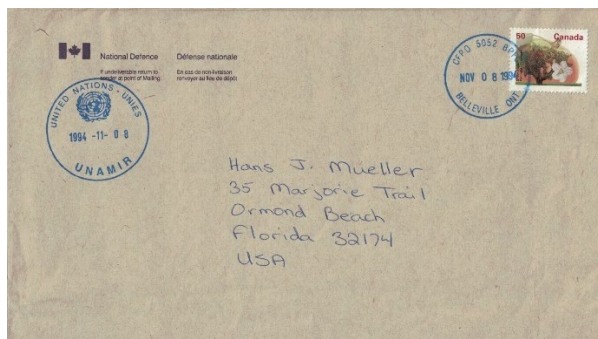 National Defence
Défense nationale
If undeliverable return to
sender at point of Mailing
En cas de non-livraison
renvoyer au lieu de dépôt
UNITED NATIONS - UNIES
1994 -11- 08
UNAMIR
50 Canada
CFPO 5052 BPFC
NOV 08 1994
BELLEVILLE ONT
Hans J. Mueller
35 Marjorie Trail
Ormond Beach
Florida 32174
USA